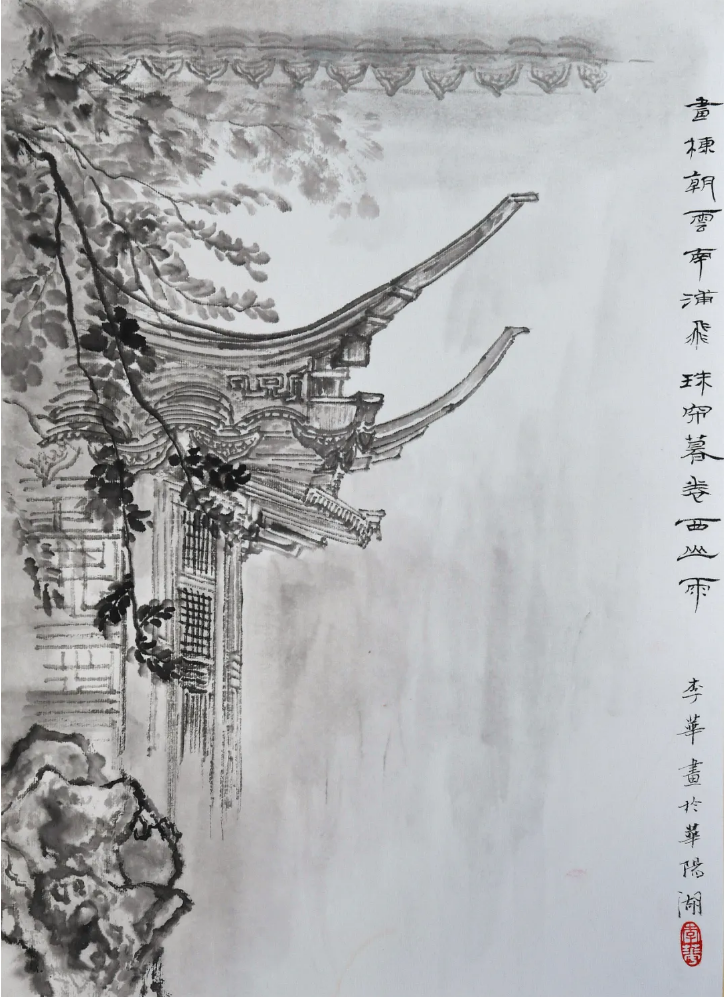 畫棟朝雲南浦飛 珠帘暮卷西山雨
李華畫於華陽湖
李華